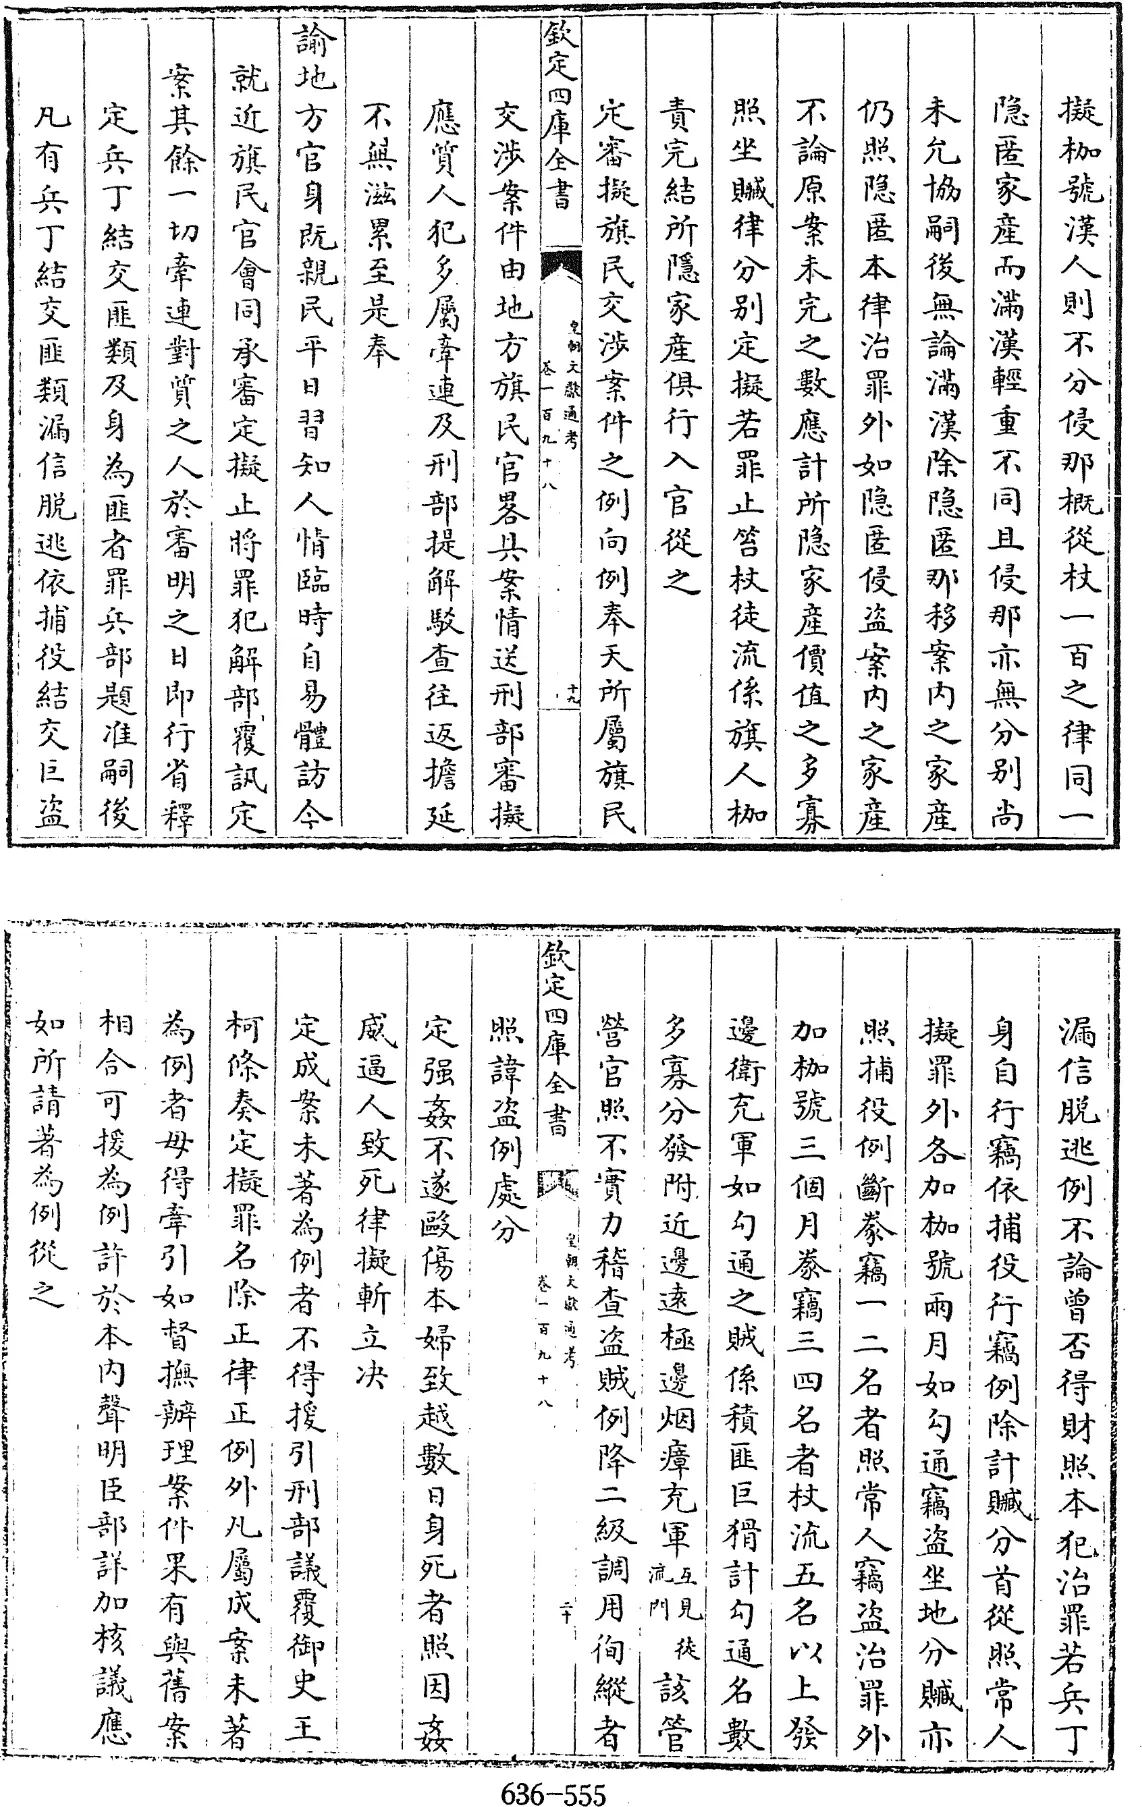 擬枷號漢人則不分侵那概從杖一百之律同一
隱匿家産而滿漢輕重不同且侵那亦無分别尚
未允協嗣後無論滿漢除隱匿那移案内之家産
仍照隱匿本律治罪外如隱匿侵盜案内之家産
不論原案未完之數應計所隱家産價值之多寡
照坐贓律分别定擬若罪止笞杖徒流係旗人枷
責完結所隱家産俱行入官從之
定審擬旗民交涉案件之例向例奉天所屬旗民
欽定四庫全書
皇朝文獻通考
卷一百九十八
十九
交涉案件由地方旗民官畧具案情送刑部審擬
應質人犯多屬牽連及刑部提解駁查往返擔延
不無滋累至是奉
諭地方官身既親民平日習知人情臨時自易體訪今
就近旗民官會同承審定擬止將罪犯解部覆訊定
案其餘一切牽連對質之人於審明之日即行省釋
定兵丁結交匪類及身為匪者罪兵部題准嗣後
凡有兵丁結交匪類漏信脱逃依捕役結交巨盜
漏信脱逃例不論曾否得財照本犯治罪若兵丁
身自行竊依捕役行竊例除計贓分首從照常人
擬罪外各加枷號兩月如勾通竊盜坐地分贓亦
照捕役例斷豢竊一二名者照常人竊盜治罪外
加枷號三個月豢竊三四名者杖流五名以上發
邊衛充軍如勾通之賊係積匪巨猾計勾通名數
多寡分發附近邊遠極邊烟瘴充軍互見徒流門該管
營官照不實力稽查盜賊例降二級調用徇縱者
欽定四庫全書
皇朝文獻通考
卷一百九十八
二十
照諱盜例處分
定强姦不遂毆傷本婦致越數日身死者照因姦
威逼人致死律擬斬立决
定成案未著為例者不得援引刑部議覆御史王
柯條奏定擬罪名除正律正例外凡屬成案未著
為例者毋得牽引如督撫辦理案件果有與舊案
相合可援為例許於本内聲明臣部詳加核議應
如所請著為例從之
636-555